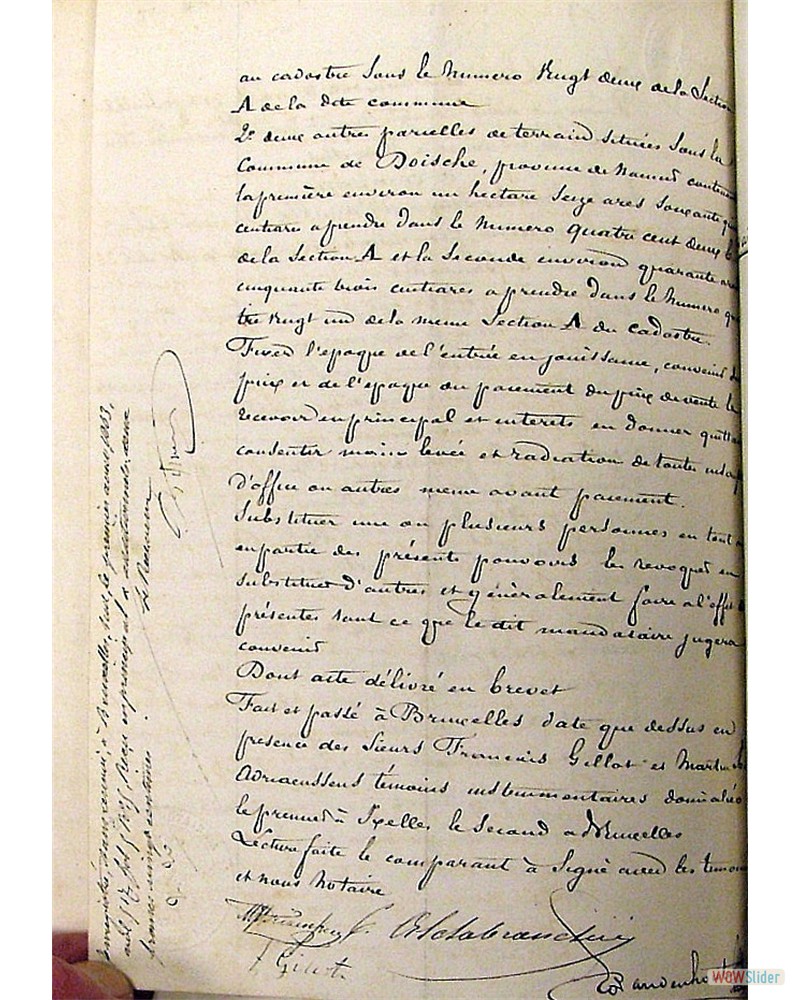 au cadastre sous le Numero Vingt deux de la Section
A de la dite commune
2° deux autres parcelles de terrain situées sous la
Commune de Doische, province de Namur contenant
la première environ un hectare seize ares soixante
centiares a prendre dans le Numero quatre cent deux
de la Section A et la Seconde environ quarante ares
cinquante trois centiares a prendre dans le Numero qua
tre vingt un de la meme Section A du cadastre.
Fixer l'epoque de l'entrée en jouissance, convenir du
prix et de l'epoque du paiement du prix de vente le
recevoir en principal et interets en donner quittan
consentir main levée et radiation de toute inscrip
d'office ou autres meme avant paiement.
Substituer une ou plusieurs personnes en tout ou
en partie des présents pouvoirs les revoquer en
substituer d'autres et généralement faire a l'effet des
présentes tout ce que le dit mandataire jugera
convenir
Dont acte délivré en brevet
Fait et passé à Bruxelles date que dessus en
presence des Sieurs François Gillot et Martin
Adriaenssens témoins instrumentaires domiciliés
le premier à Ixelles le Second a Bruxelles
Lecture faite le comparant à Signé avec les temoins
et nous Notaire
Delabranche
F Gillot
Vandenhout
Enregistré, à Bruxelles, Sud, le premier août 1863,
vol. 517 fol. 5 Reçu en principal & additionnels deux
francs vingt centimes.
Le Receveur
WOWSlider